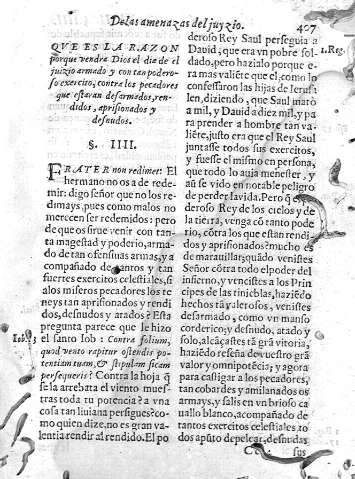 De las amenazas del juyzio. 407
QVE ES LA RAZON
porque vendra Dios el dia de el
juizio armado y con tan podero-
so exercito, contra los pecadores
que estaran desarmados, ren-
didos, aprisionados y
desnudos.
§. IIII.
FRATER non redimet: El
hermano no os a de rede-
mir: digo señor que no los re-
dimays, pues como malos no
merecen ser redemidos: pero
de que os sirue venir con tan-
ta magestad y poderio, arma-
do de tan ofensiuas armas, y a
compañado de tantos y tan
fuertes exercitos celestiales, si
a los miseros pecadores los te
neys tan aprisionados y rendi
dos, desnudos y atados? Esta
pregunta parece que le hizo
Iob. 13 el santo Iob: Contra folium,
quod vento rapitur ostendis po-
tentiam tuam, & stipulam sicam
persequeris? Contra la hoja q̃
se la arrebata el viento mues-
tras toda tu potencia? a vna
cosa tan liuiana persigues? co-
mo quien dize, no es gran va-
lentia rendir al rendido. El po
deroso Rey Saul perseguia a
Dauid, que era vn pobre sol- 1. Reg.
dado, pero hazialo porque e-
ra mas valiẽte que el, como lo
confessaron las hijas de Ierusa
len, diziendo, que Saul matò
a mil, y Dauid a diez mil, y pa
ra prender a hombre tan va-
liẽte, justo era que el Rey Saul
juntasse todos sus exercitos,
y fuesse el mismo en persona,
que todo lo auia menester, y
aũ se vido en notable peligro
de perder la vida. Pero q̃ el po
deroso Rey de los cielos y de
la tierra, venga cõ tanto pode
rio, cõtra los que estan rendi
dos y aprisionados? mucho es
de marauillar; quãdo venistes
Señor cõtra todo el poder del
infierno, y vencistes a los Prin
cipes de las tinieblas, haziẽdo
hechos tã valerosos, venistes
desarmado, como vn manso
corderico; y desnudo, atado y
solo, alcãçastes tã gran vitoria,
haziẽdo reseña de vuestro grã
valor y omnipotẽcia; y agora
para castigar a los pecadores,
tan cobardes y amilanados os
armays, y salis en vn brioso ca
uallo blanco, acompañado de
tantos exercitos celestiales to
dos apũto de pelear, desnudas
sus